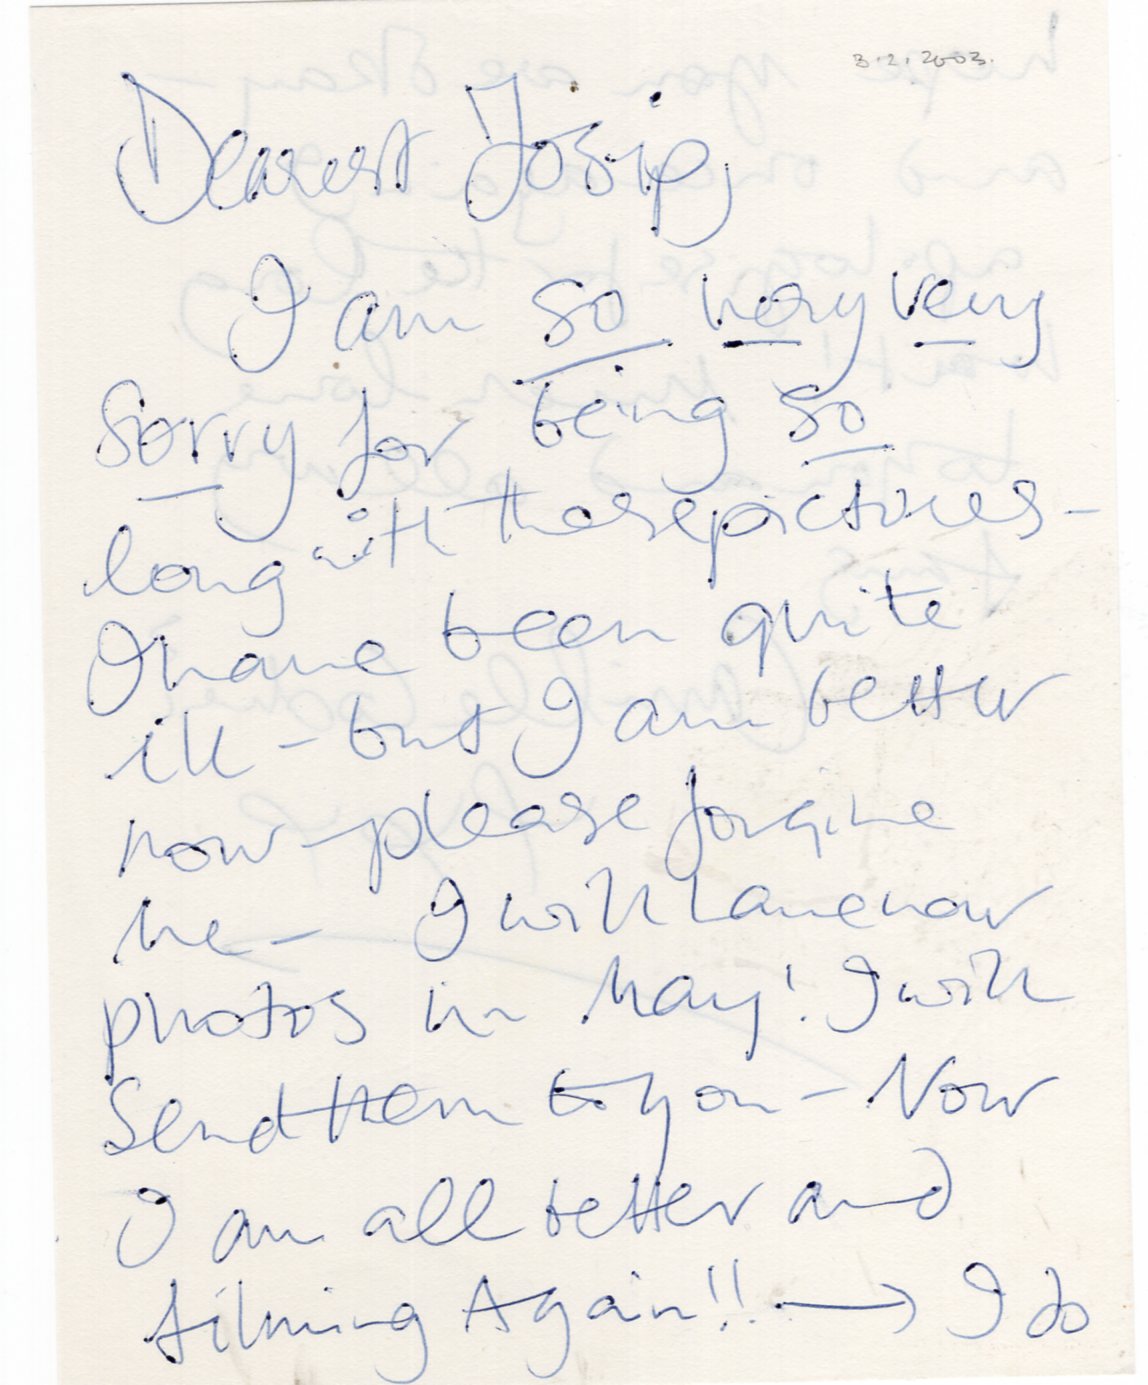 3.2.2003.
Dearest Josip,
I am so very very
sorry for being so
long with these pictures -
I have been quite
ill - but I am better
now - please forgive
me - I will have now
photos in May! I will
send them to you - Now
I am all better and
filming Again!! → I do